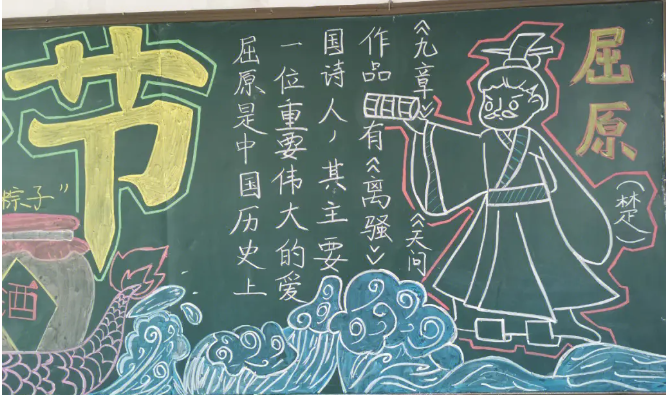 节
粽子”
屈原是中国历史上
一位重要伟大的爱
国诗人，其主要
作品有《离骚》
《九章》《天问
屈原
（楚）